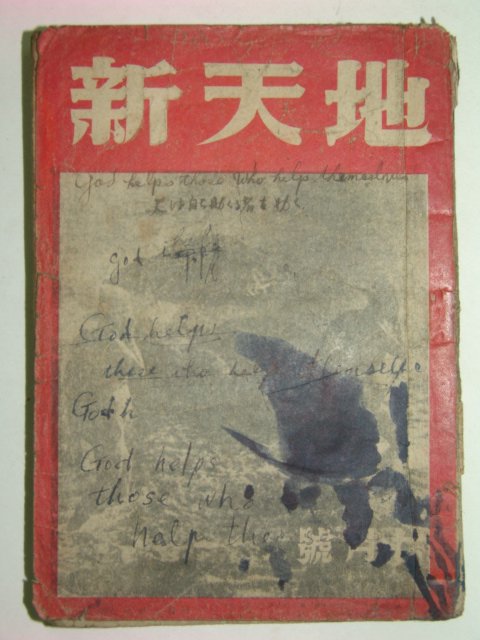 新天地
God helps those who help themselves
天は自ら助くる者を助く
god
God helps
those who help themselves
Godh
God helps
those who
halp the
月號